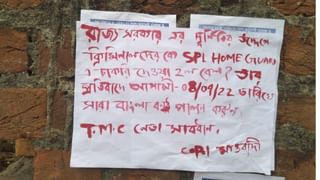 রাজ্য সরকার এর দুর্নীতির উদ্দেশে
ক্রিমিনালদের কে SPL HOME GUARD
এ চাকরি দেওয়া হল কেন? তার
প্রতিবাদে আগামী - 08/04/22 তারিখে
সারা বাংলা বন্ধ পালন করুন,
T.M.C নেতা সাবধান,
CPI মাওবাদী